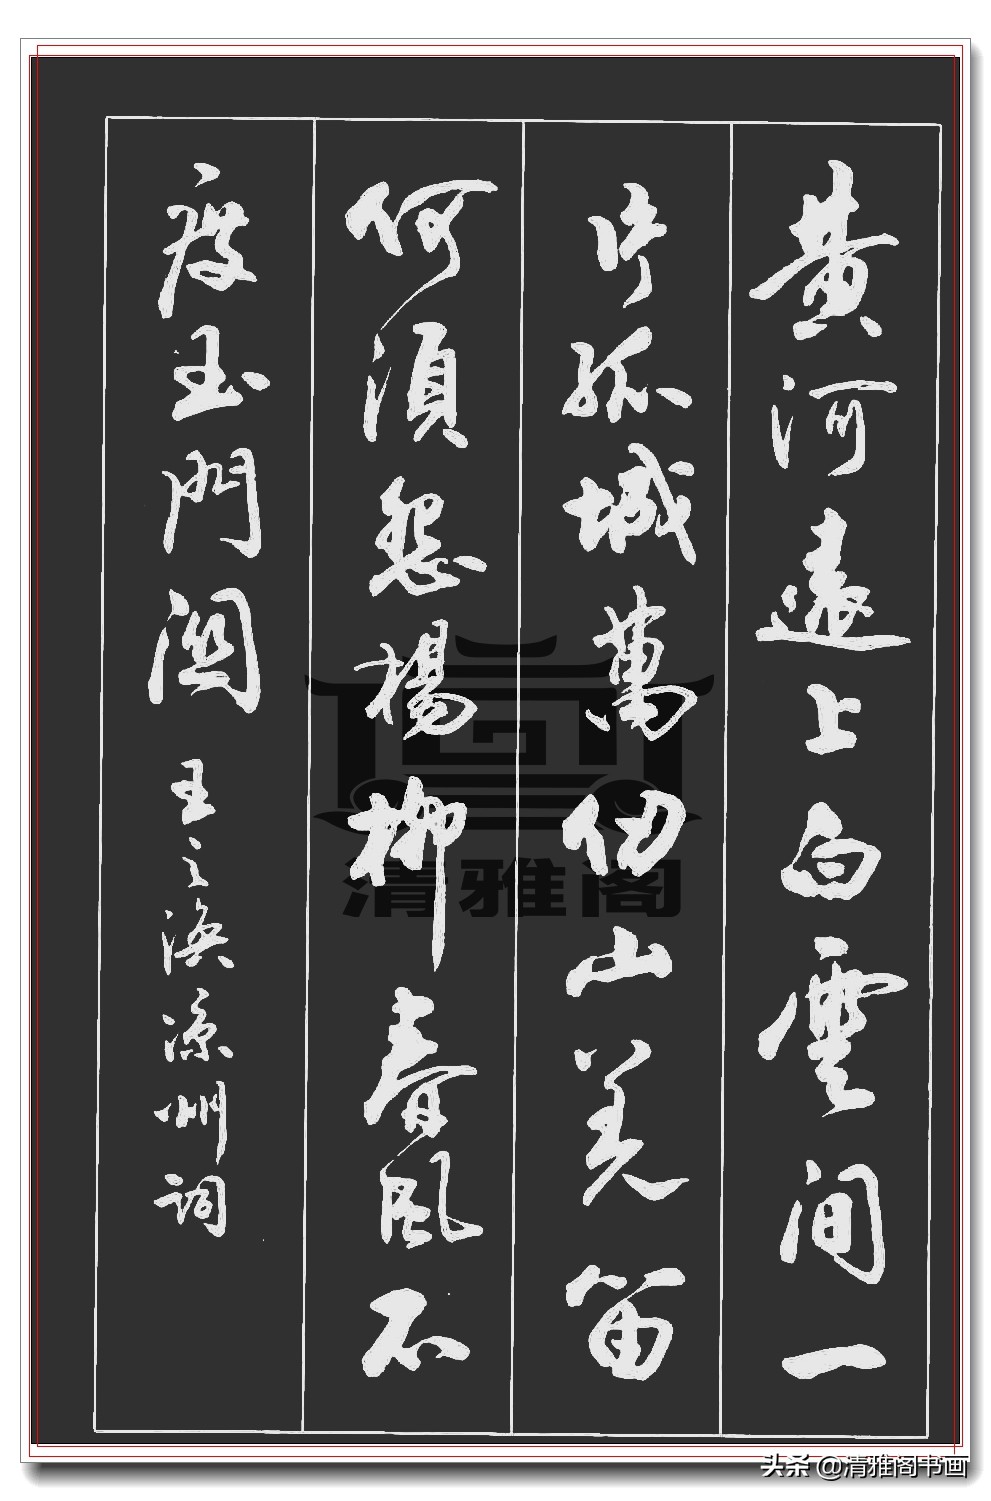 黄河遠上白雲间一
片孤城萬仞山羌笛
何須怨楊柳春風不
度玉門関
王之渙涼州詞
清雅阁
头条 @清雅阁书画